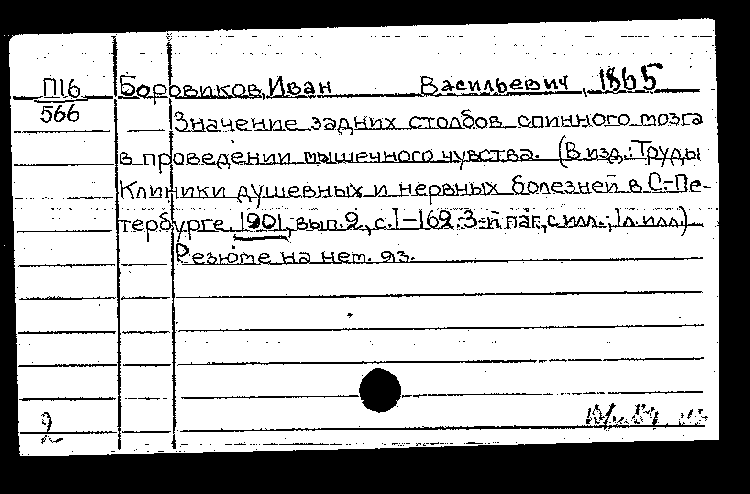 П16 Боровиков, Иван Васильевич, 1865
566
Значение задних столбов спинного мозга
в проведении мышечного чувства. (В изд.: Труды
Клиники душевных и нервных болезней в С.-Пе-
тербурге. 1901, вып. 2, с. I-162. 3-й паг., с илл.; 1 л. илл.)
Резюме на нем. яз.
2